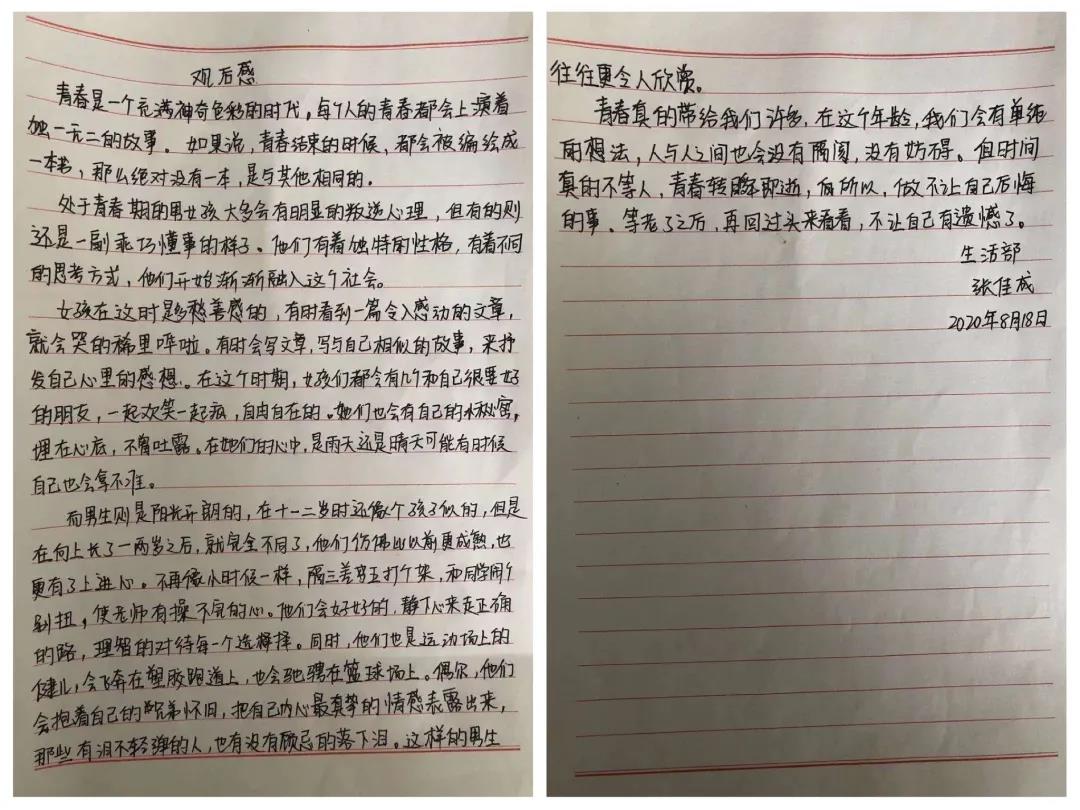 观后感
青春是一个充满神奇色彩的时代，每个人的青春都会上演着
独一无二的故事。如果说，青春结束的时候，都会被编绘成
一本书，那么绝对没有一本，是与其他相同的。
处于青春期的男女孩大多会有明显的叛逆心理，但有的则
还是一副乖巧懂事的样子。他们有着独特的性格，有着不同
的思考方式，他们开始渐渐融入这个社会。
女孩在这时是多愁善感的，有时看到一篇令人感动的文章，
就会哭的稀里哗啦。有时会写文章，写与自己相似的故事，来抒
发自己心里的感想。在这个时期，女孩们都会有几个和自己很要好
的朋友，一起欢笑一起疯，自由自在的。她们也会有自己的小秘密，
埋在心底，不曾吐露。在她们的心中，是雨天还是晴天可能有时候
自己也会拿不准。
而男生则是阳光开朗的，在十一二岁时还像个孩子似的，但是
在向上长了一两岁之后，就完全不同了，他们仿佛比以前更成熟，也
更有了上进心。不再像小时候一样，隔三差五打个架，和同学闹个
别扭，使老师有操不完的心。他们会好好的，静下心来走正确
的路，理智的对待每一个选择。同时，他们也是运动场上的
健儿，会飞奔在塑胶跑道上，也会驰骋在篮球场上。偶尔，他们
会抱着自己的兄弟怀旧，把自己内心最真挚的情感表露出来，
那些有泪不轻弹的人，也有没有顾忌的落下泪。这样的男生
往往更令人欣赏。
青春真的带给我们许多，在这个年龄，我们会有单纯
的想法，人与人之间也会没有隔阂，没有妨碍。但时间
真的不等人，青春转瞬即逝，所以，做不让自己后悔
的事。等老了之后，再回过头来看看，不让自己有遗憾了。
生活部
张佳成
2020年8月18日